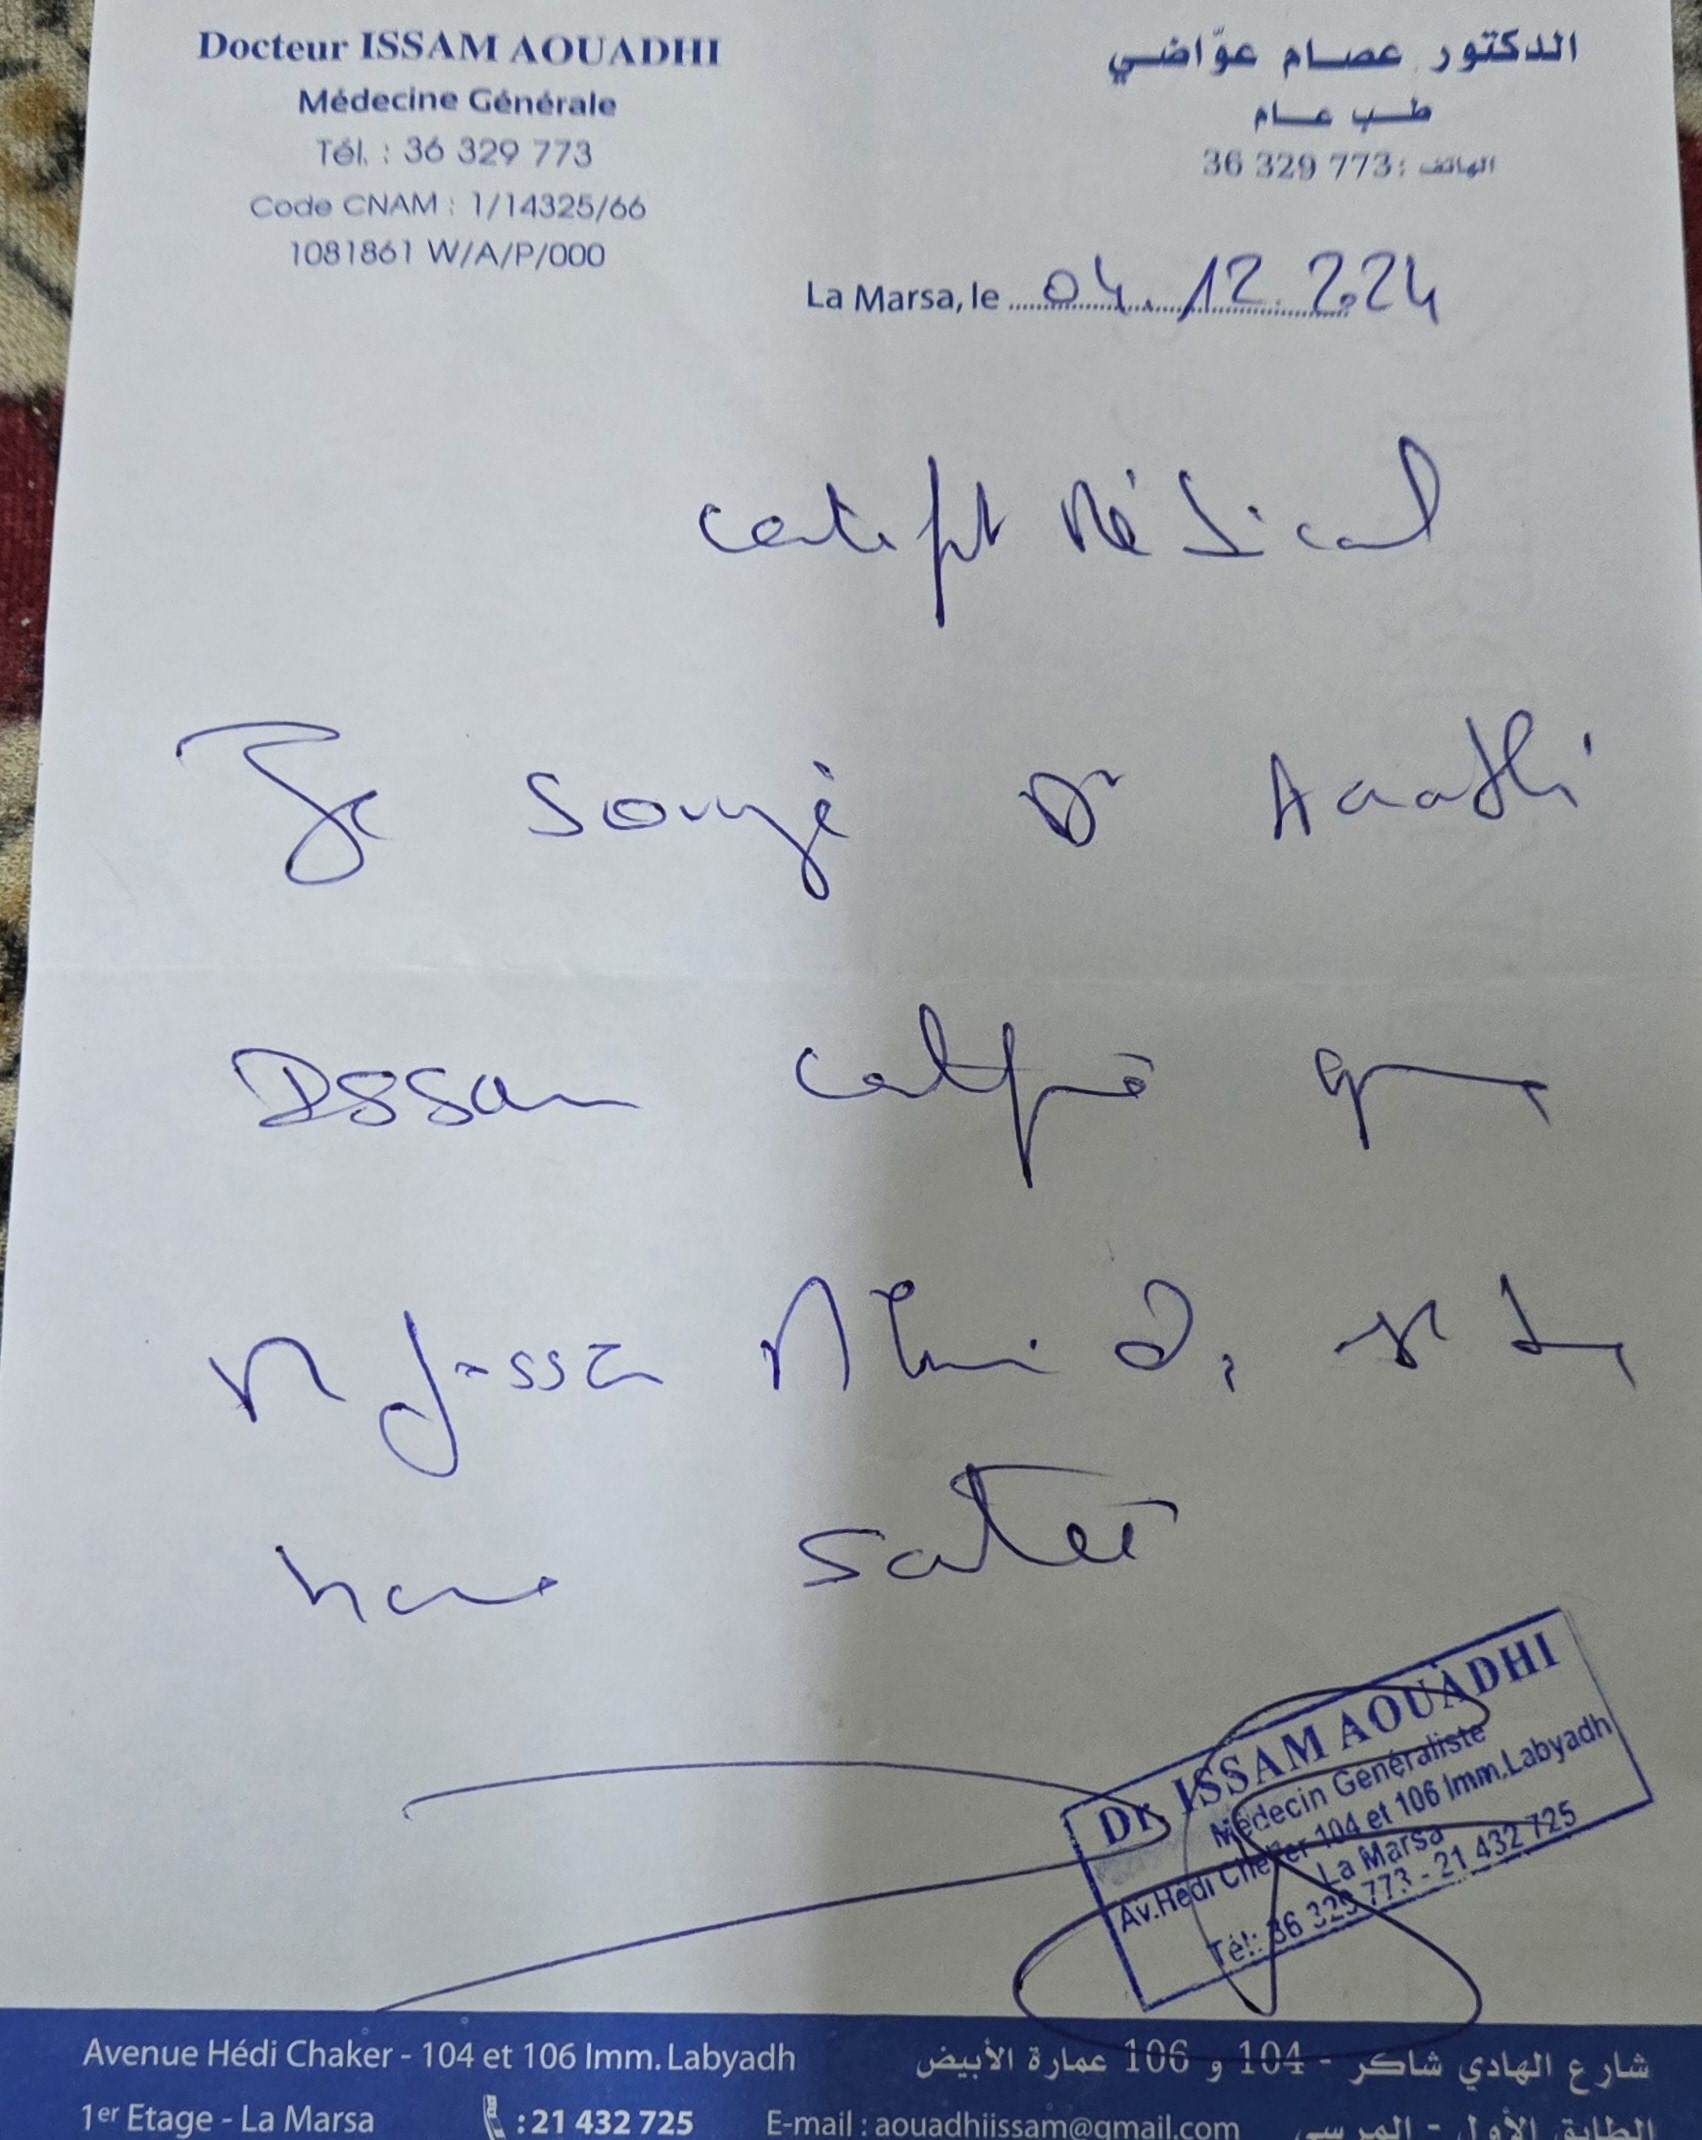 Docteur ISSAM AOUADHI
Médecine Générale
Tél. : 36 329 773
Code CNAM : 1/14325/66
1081861 W/A/P/000
الدكتور عصام عوّاضي
طب عام
الهاتف : 36 329 773
La Marsa, le 04.12.2024
Certificat Médical
Je soussigné Dr Aouadhi
Issam certifie que
est
Dr. ISSAM AOUADHI
Médecin Généraliste
Av.Hédi Cheker 104 et 106 Imm.Labyadh
La Marsa
Tél: 36 329 773 - 21 432 725
Avenue Hédi Chaker - 104 et 106 Imm. Labyadh
1er Etage - La Marsa
: 21 432 725
E-mail : aouadhiissam@gmail.com
شارع الهادي شاكر - 104 و 106 عمارة الأبيض
الطابق الأول - المرسى